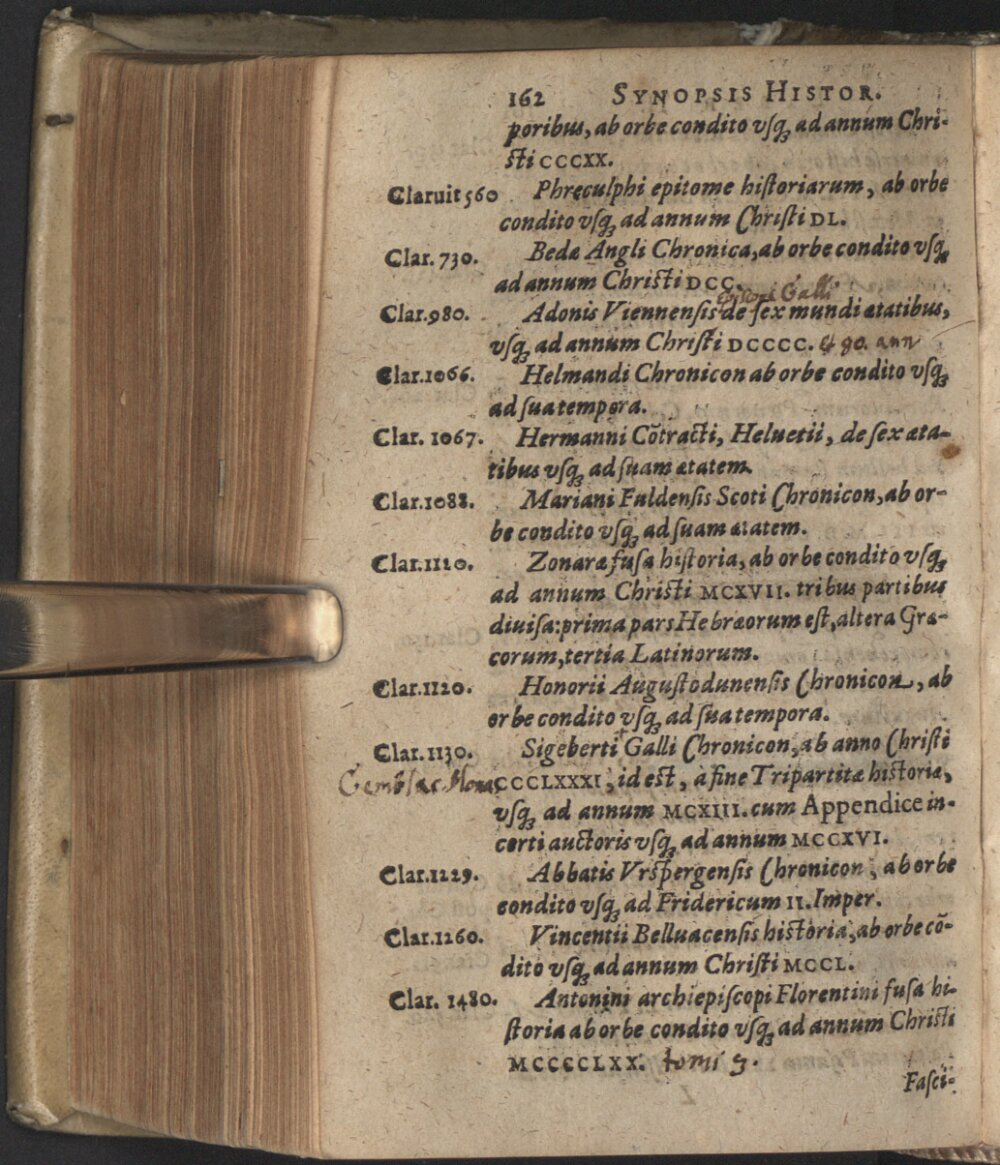 162 SYNOPSIS HISTOR.
poribus, ab orbe condito vsq; ad annum Chri-
sti CCCXX.
Claruit 560 Phręculphi epitome historiarum, ab orbe
condito vsq; ad annum Christi DL.
Clar. 730. Bedæ Angli Chronica, ab orbe condito vsq;
ad annum Christi DCC.
Galli
Clar. 980. Adonis Viennensis de sex mundi ætatibus,
vsq; ad annum Christi DCCCC. & 90. ann
Clar. 1066. Helmandi Chronicon ab orbe condito vsq;
ad sua tempora.
Clar. 1067. Hermanni Cõtracti, Heluetii, de sex æta-
tibus vsq; ad suam ætatem.
Clar. 1088. Mariani Fuldensis Scoti Chronicon, ab or-
be condito vsq; ad suam ætatem.
Clar. 1120. Zonaræ fusa historia, ab orbe condito vsq;
ad annum Christi MCXVII. tribus partibus
diuisa: prima pars Hebræorum est, altera Græ-
corum, tertia Latinorum.
Clar. 1120. Honorii Augustodunensis Chronicon, ab
orbe condito vsq; ad sua tempora.
Clar. 1130. Sigeberti Galli Chronicon, ab anno Christi
Gemblac Mona CCCLXXXI, id est, à fine Tripartitæ historiæ,
vsq; ad annum MCXIII. cum Appendice in-
certi auctoris vsq; ad annum MCCXVI.
Clar. 1229. Abbatis Vrspergensis Chronicon, ab orbe
condito vsq; ad Fridericum II. Imper.
Clar. 1260. Vincentii Belluacensis historia, ab orbe cõ-
dito vsq; ad annum Christi MCCL.
Clar. 1480. Antonini archiepiscopi Florentini fusa hi-
storia ab orbe condito vsq; ad annum Christi
MCCCCLXX. tomi 3.
Fasci-